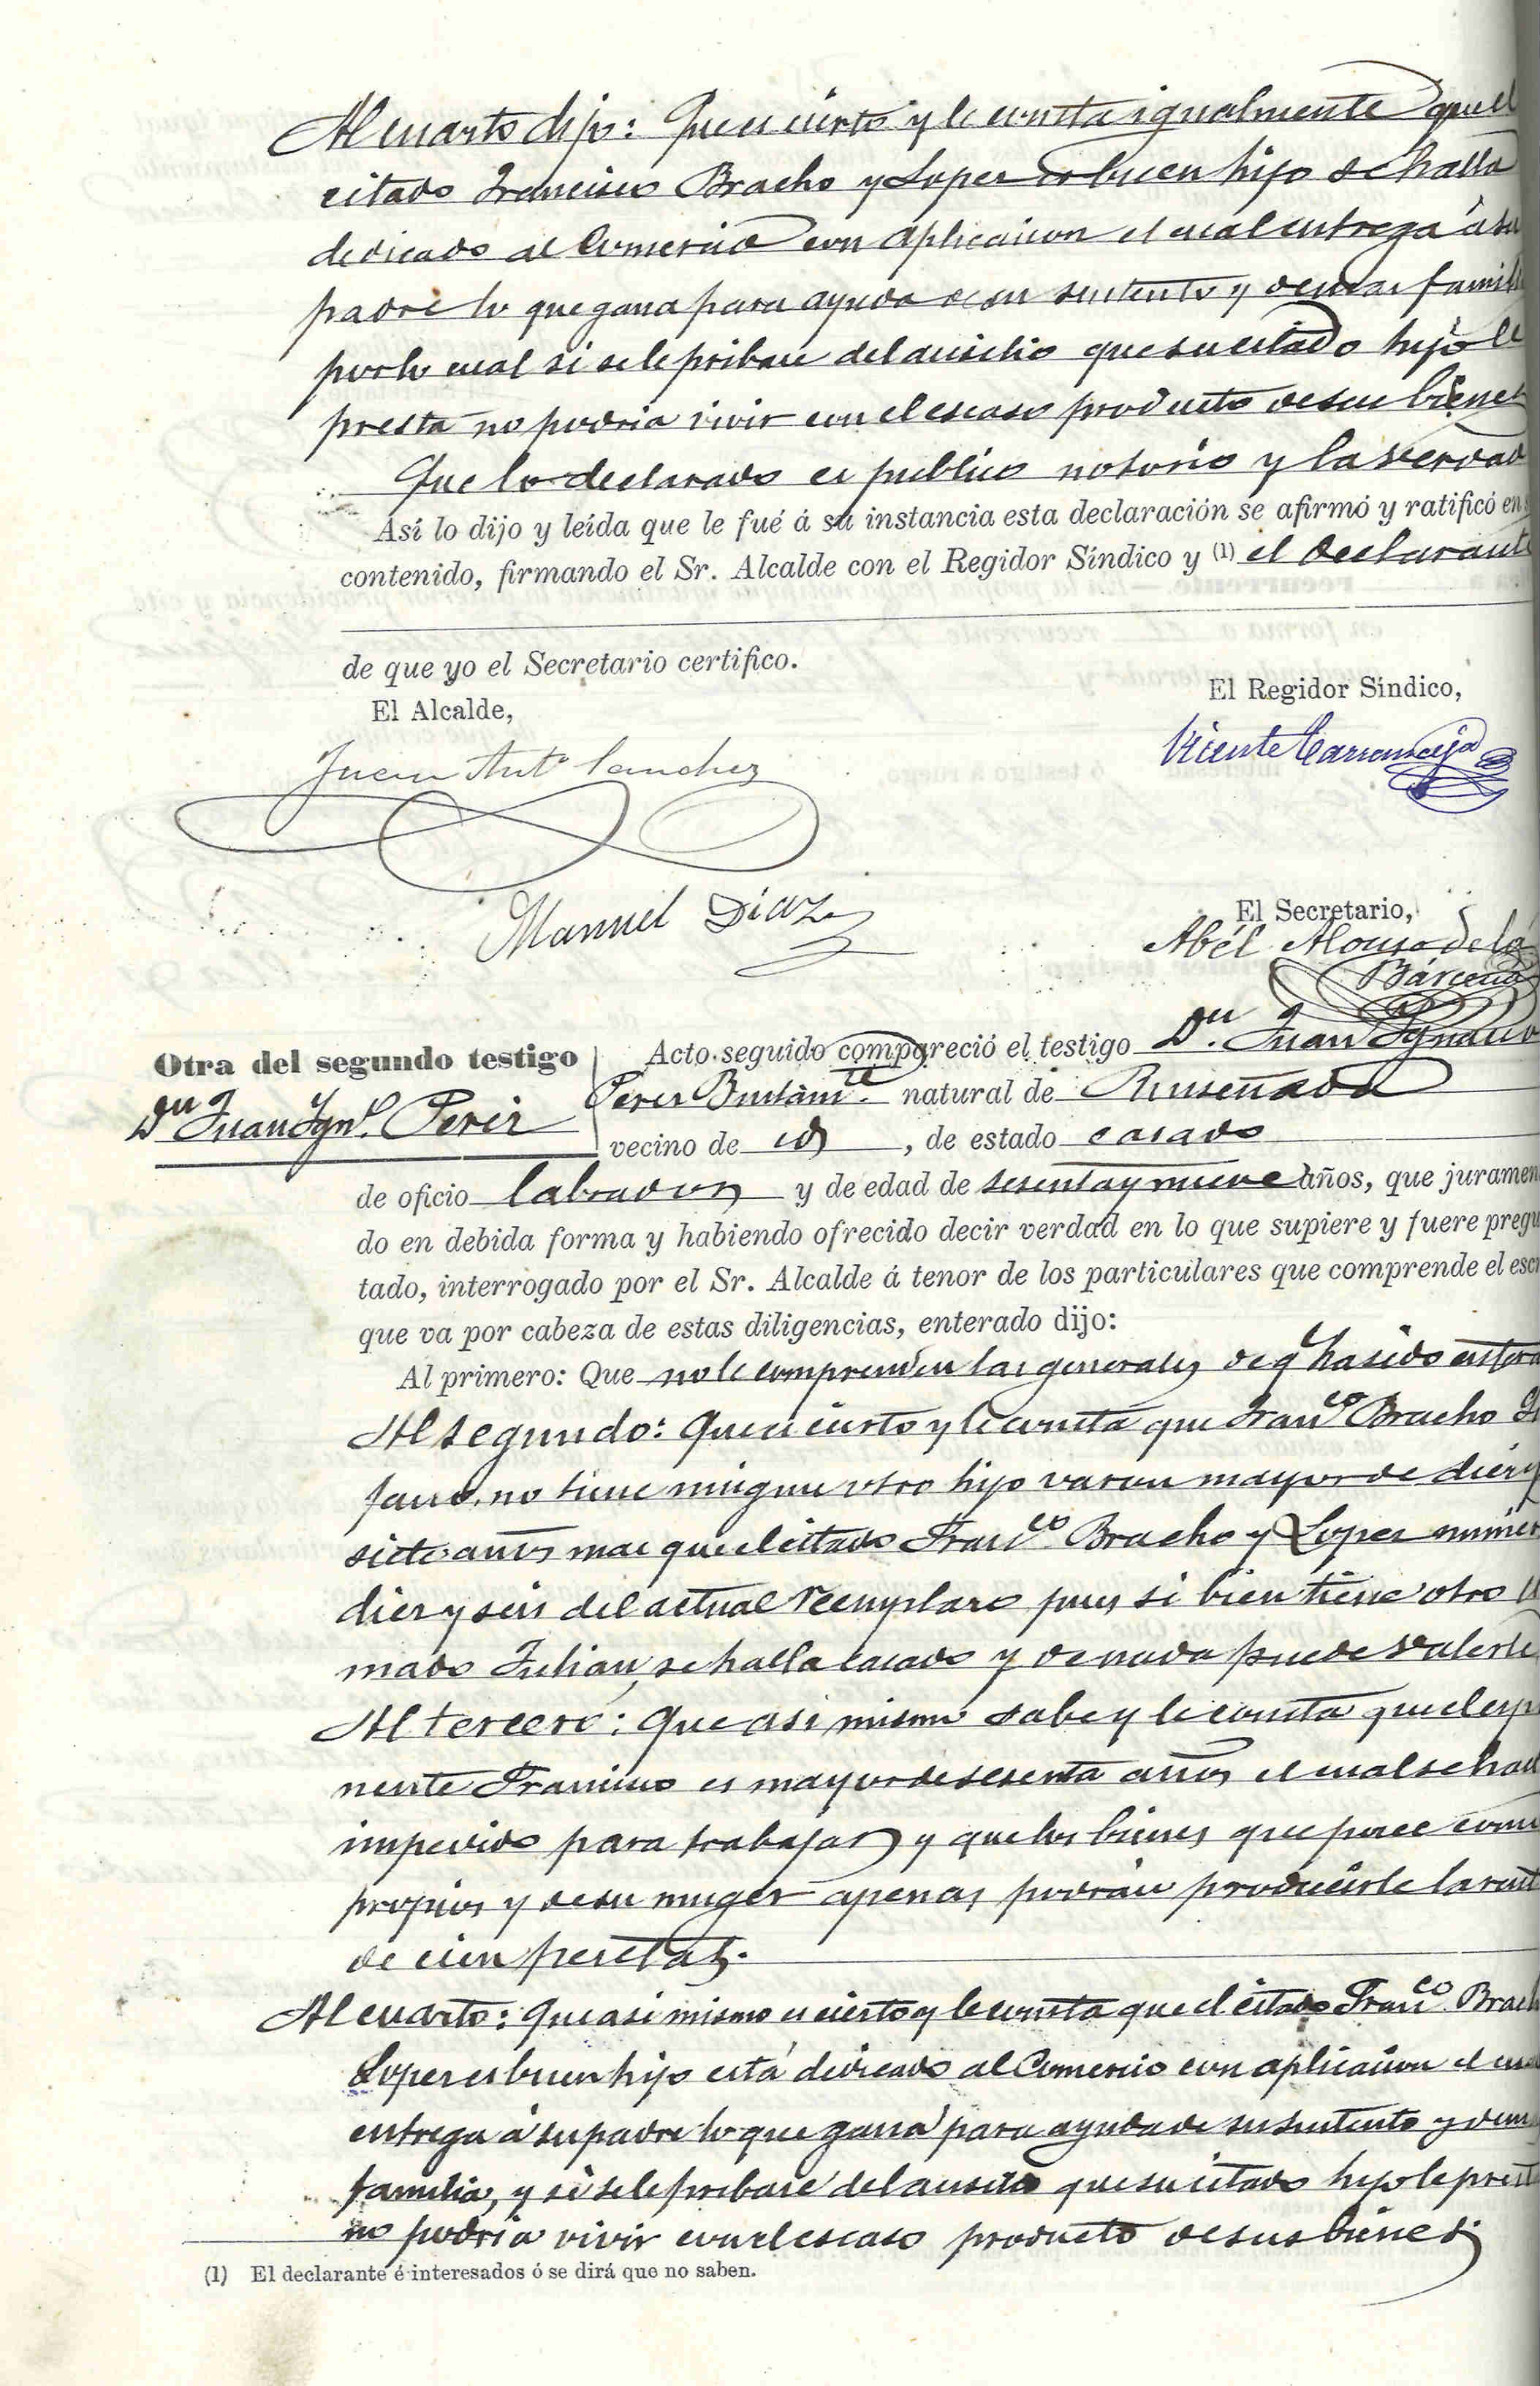 Al cuarto dijo: Que es cierto y le consta igualmente que el
citado Francisco Bracho y Lopez es buen hijo se halla
dedicado al Comercio con aplicacion el cual entrega á su
padre lo que gana para ayuda de su sustento y demas famili
por lo cual si se le pribase del ausilio que su citado hijo le
presta no podria vivir con el escaso producto de sus bienes
Que lo declarado es publico notorio y la verdad
Así lo dijo y leída que le fué á su instancia esta declaración se afirmó y ratificó en s
contenido, firmando el Sr. Alcalde con el Regidor Síndico y (1) el declarante
de que yo el Secretario certifico.
El Alcalde,
El Regidor Síndico,
Juan Antº Sanchez
Vicente
Manuel Díaz
El Secretario,
Abél Alonso de la
Bárcena
Otra del segundo testigo
Dn Juan Ygnº. Perez
Acto seguido compareció el testigo Dn. Juan Ygnacio
Perez Bustamte. natural de Ruiseñada
vecino de id , de estado casado
de oficio labrador y de edad de sesenta y nueve años, que juramen
do en debida forma y habiendo ofrecido decir verdad en lo que supiere y fuere pregu
tado, interrogado por el Sr. Alcalde á tenor de los particulares que comprende el escr
que va por cabeza de estas diligencias, enterado dijo:
Al primero: Que no le comprenden las generales de q ha sido entera
Al segundo: Que es cierto y le consta que Franco Bracho
no tiene ningun otro hijo varon mayor de diez y
siete años mas que el citado Franco Bracho y Lopez numer
diez y seis del actual reemplazo pues si bien tiene otro ll
mado Julian, se halla casado y de nada puede valerle
Al tercero: Que asi mismo sabe y le consta que el esp
nente Francisco es mayor de sesenta años el cual se hall
impedido para trabajar y que los bienes que posee como
propios y de su muger apenas podrán producirle la rent
de cien pesetas.
Al cuarto: Que asi mismo es cierto y le consta que el citado Franco Brach
Lopez es buen hijo está dedicado al Comercio con aplicacion el cual
entrega á su padre lo que gana para ayuda de su sustento y dem
familia, y si se le pribase del ausilio que su citado hijo le prest
no podria vivir con el escaso producto de sus bienes
(1) El declarante é interesados ó se dirá que no saben.